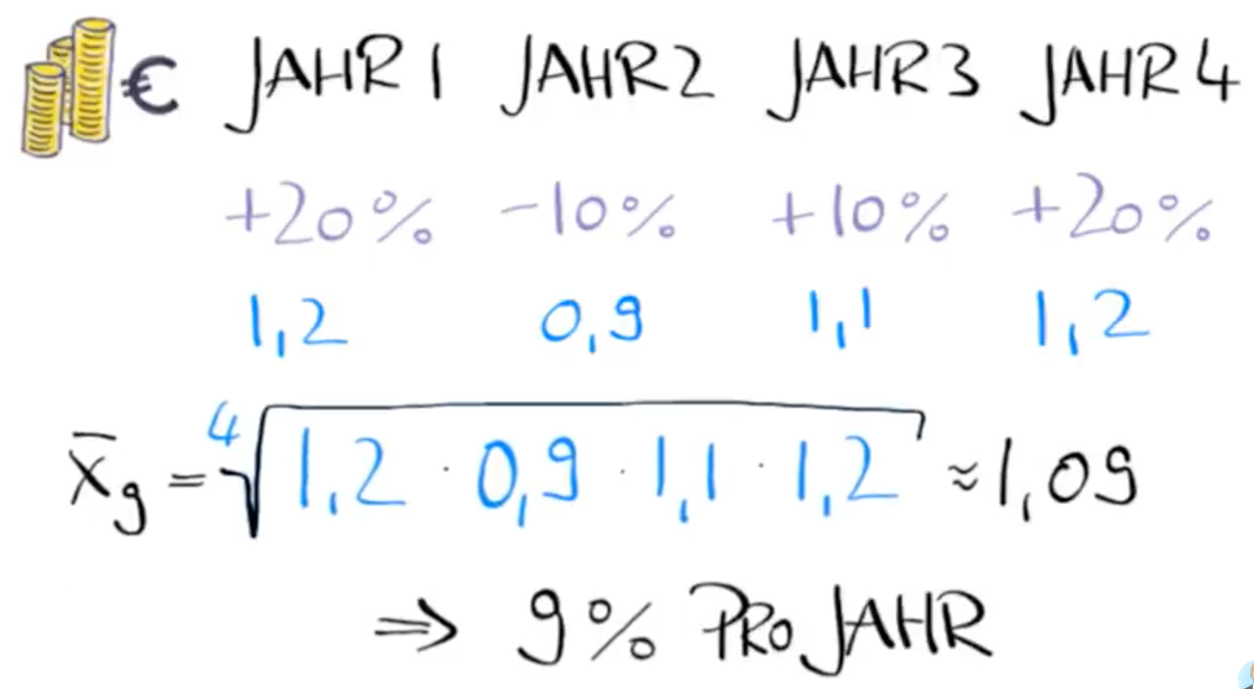 € JAHR 1 JAHR 2 JAHR 3 JAHR 4
+20% -10% +10% +20%
1,2 0,9 1,1 1,2
x̄g = ⁴√1,2 · 0,9 · 1,1 · 1,2 ≈ 1,09
⇒ 9% PRO JAHR